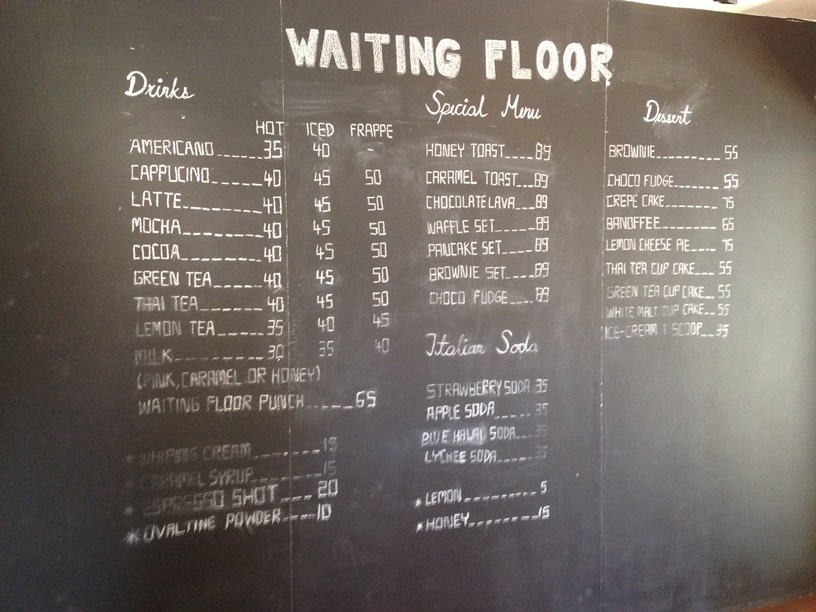 WAITING FLOOR
Drinks
HOT ICED FRAPPE
AMERICANO 35 40 -
CAPPUCINO 40 45 50
LATTE 40 45 50
MOCHA 40 45 50
COCOA 40 45 50
GREEN TEA 40 45 50
THAI TEA 40 45 50
LEMON TEA 35 40 45
MILK 30 35 40
(PINK, CARAMEL OR HONEY)
WAITING FLOOR PUNCH 65
* WHIPING CREAM 15
* CARAMEL SYRUP 15
* ESPRESSO SHOT 20
* OVALTINE POWDER 10
Special Menu
HONEY TOAST 89
CARAMEL TOAST 89
CHOCOLATE LAVA 89
WAFFLE SET 89
PANCAKE SET 89
BROWNIE SET 89
CHOCO FUDGE 89
Italian Soda
STRAWBERRY SODA 35
APPLE SODA 35
BLUE HAWAI SODA 35
LYCHEE SODA 35
* LEMON 5
* HONEY 15
Dessert
BROWNIE 55
CHOCO FUDGE 55
CREPE CAKE 75
BANOFFEE 65
LEMON CHEESE PIE 75
THAI TEA CUP CAKE 55
GREEN TEA CUP CAKE 55
WHITE MALT CUP CAKE 55
ICE-CREAM 1 SCOOP 35